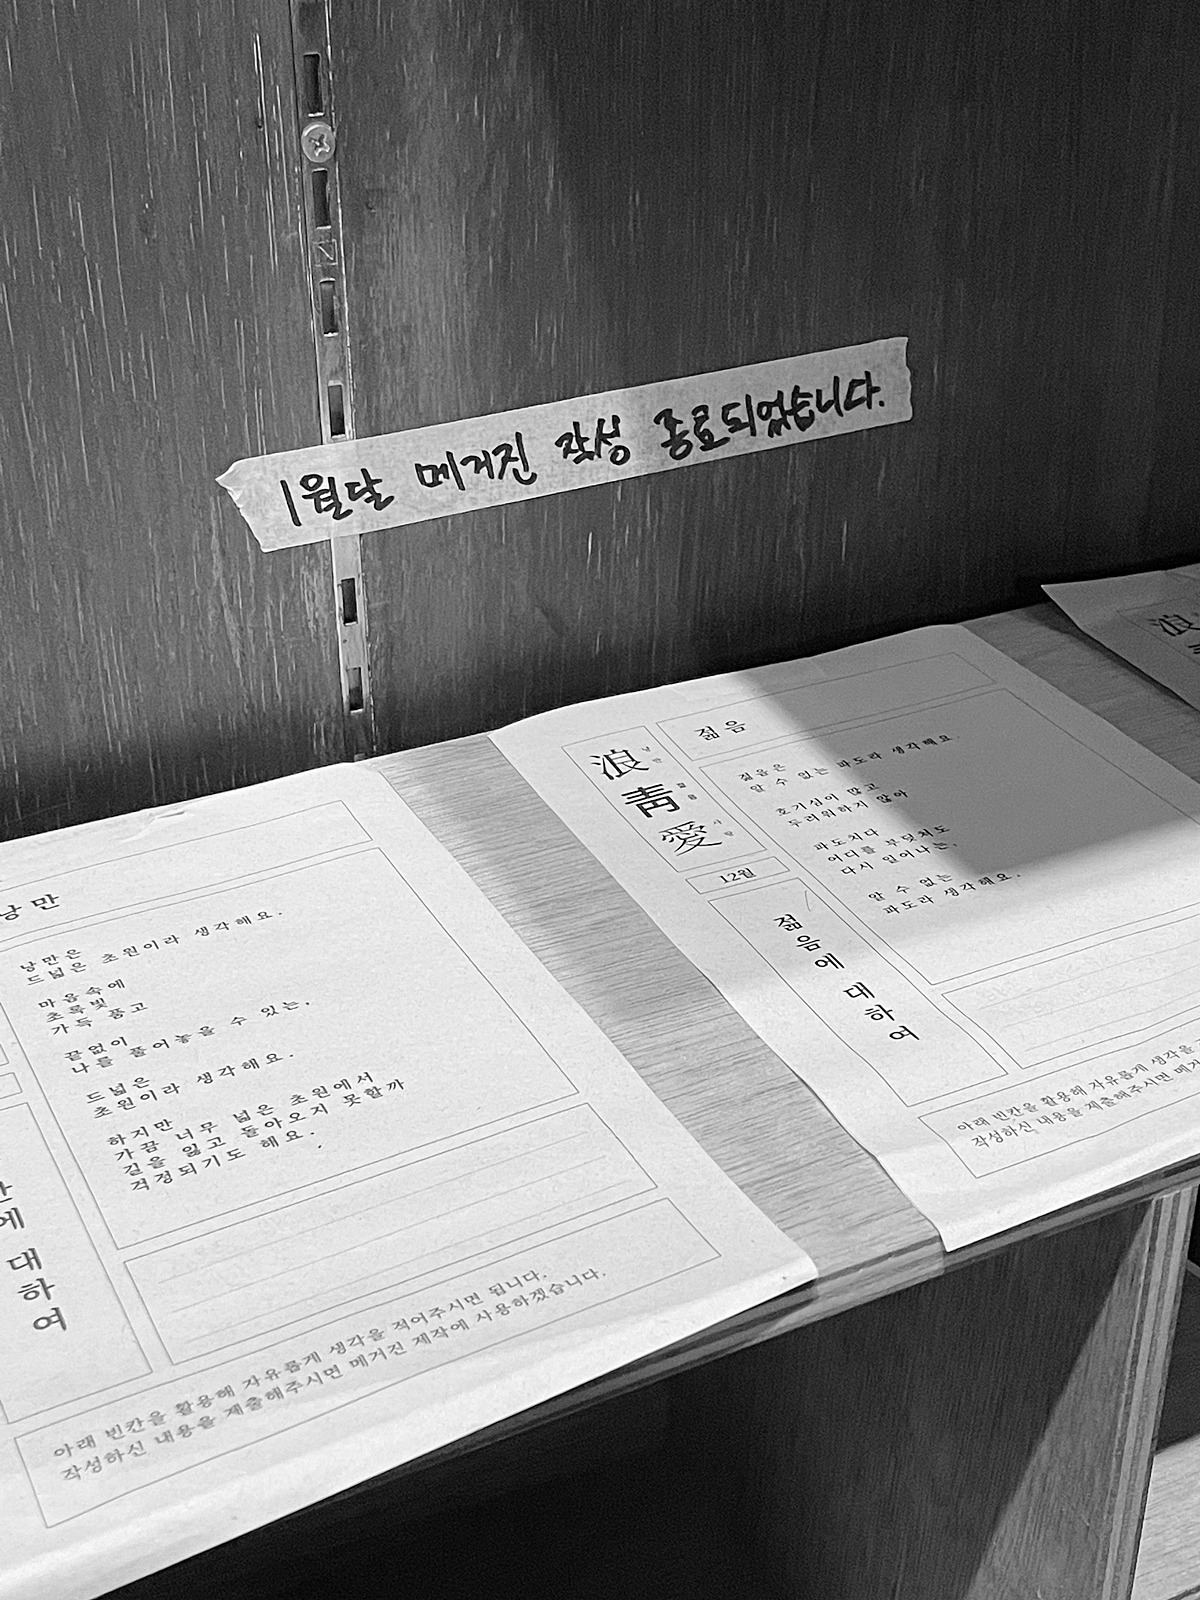 1월달 메거진 작성 종료되었습니다.
낭만
낭만은
드넓은 초원이라 생각해요.
마음속에
초록빛
가득 품고
끝없이
나를 풀어놓을 수 있는,
드넓은
초원이라 생각해요.
하지만
가끔 너무 넓은 초원에서
길을 잃고 돌아오지 못할까
걱정되기도 해요.
에 대하여
아래 빈칸을 활용해 자유롭게 생각을 적어주시면 됩니다.
작성하신 내용을 제출해주시면 메거진 제작에 사용하겠습니다.
浪 낭만
靑 젊음
愛 사랑
12월
젊음에 대하여
젊음
젊음은
알 수 없는 파도라 생각해요.
호기심이 많고
두려워하지 않아
파도치다
어디를 부딪쳐도
다시 일어나는,
알 수 없는
파도라 생각해요.
아래 빈칸을 활용해 자유롭게 생각을
작성하신 내용을 제출해주시면 메거
浪